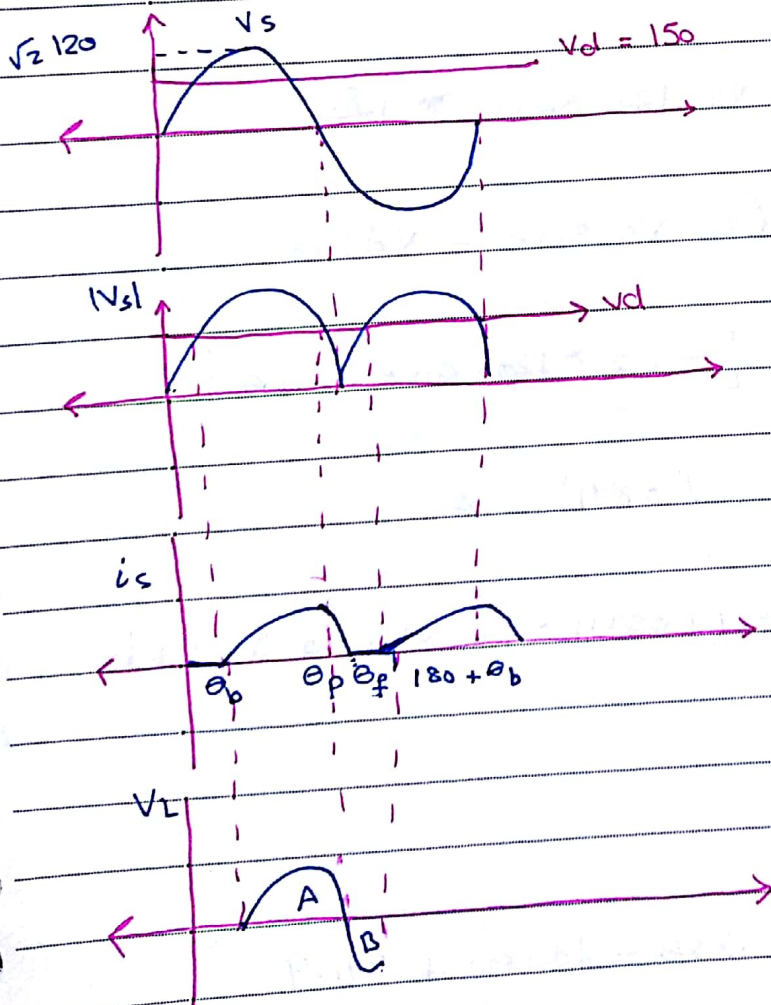 Vs
√2 120
Vd = 150
|Vs|
Vd
is
θb θp θf 180 + θb
VL
A
B